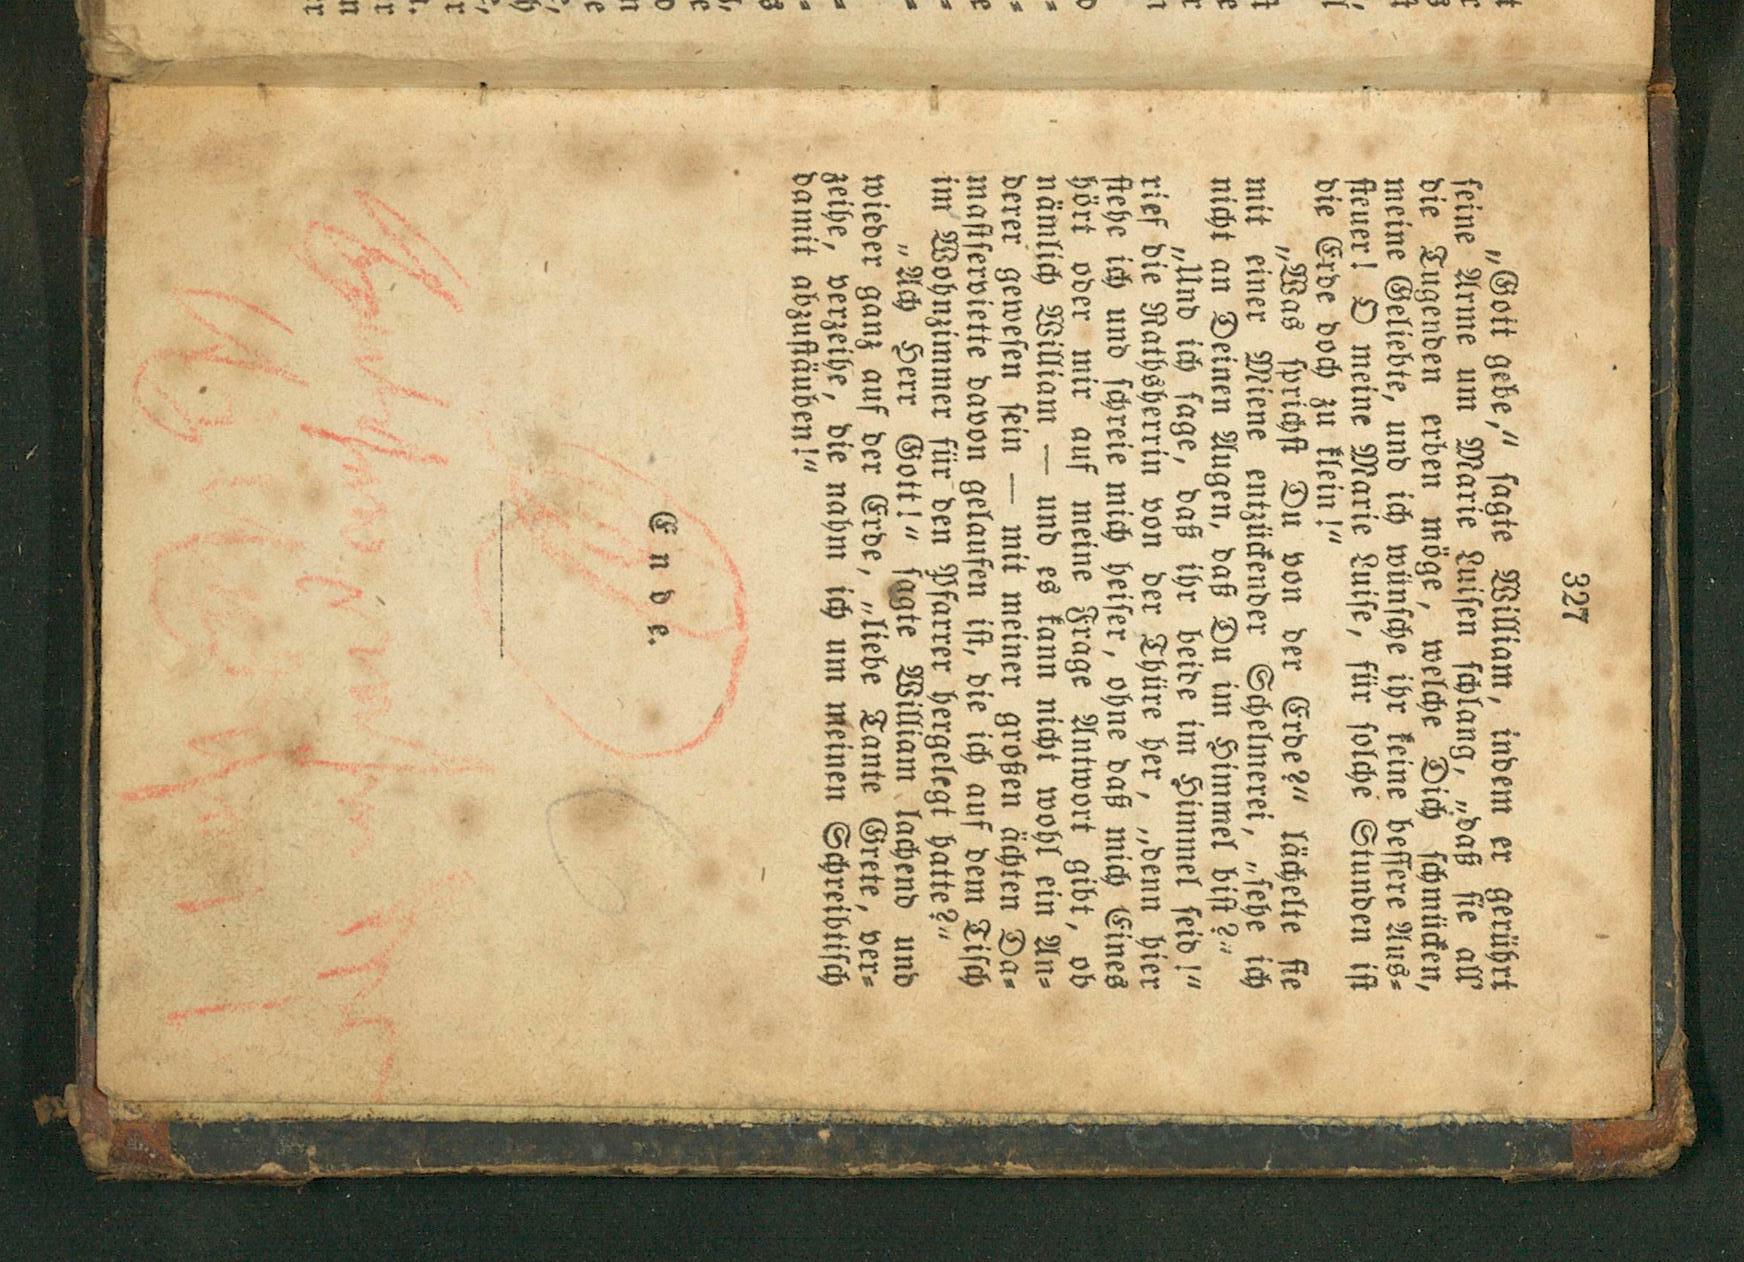 327
„Gott gebe,“ sagte William, indem er gerührt
seine Arme um Marie Luisen schlang, „daß sie all'
die Tugenden erben möge, welche Dich schmücken,
meine Geliebte, und ich wünsche ihr keine bessere Aus-
steuer! O meine Marie Luise, für solche Stunden ist
die Erde doch zu klein!“
„Was sprichst Du von der Erde?“ lächelte sie
mit einer Miene entzückender Schelmerei, „sehe ich
nicht an Deinen Augen, daß Du im Himmel bist?“
„Und ich sage, daß ihr beide im Himmel seid!“
rief die Rathsherrin von der Thüre her, „denn hier
stehe ich und schreie mich heiser, ohne daß mich Eines
hört oder mir auf meine Frage Antwort gibt, ob
nämlich William — und es kann nicht wohl ein An-
derer gewesen sein — mit meiner großen ächten Da-
mastserviette davon gelaufen ist, die ich auf dem Tisch
im Wohnzimmer für den Pfarrer hergelegt hatte?“
„Ach Herr Gott!“ sagte William lachend und
wieder ganz auf der Erde, „liebe Tante Grete, ver-
zeihe, verzeihe, die nahm ich um meinen Schreibtisch
damit abzustäuben!“
Ende.